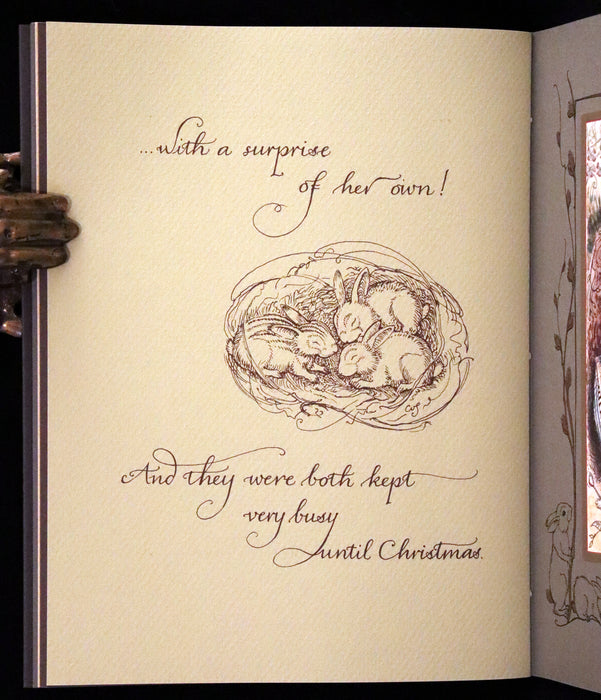 ...with a surprise
of her own!
And they were both kept
very busy
until Christmas.